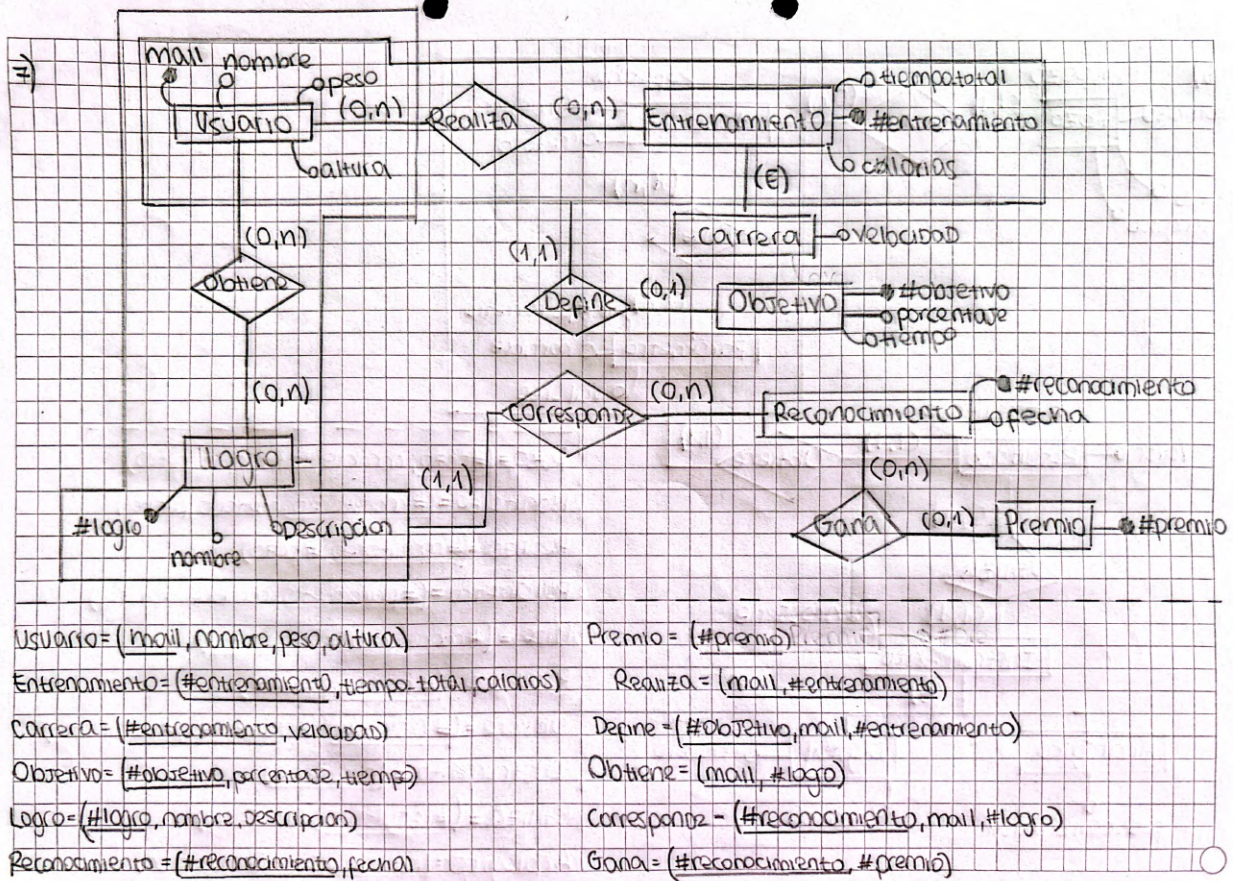 7)
mail nombre
peso
Usuario
altura
(0,n)
Realiza
(0,n)
Entrenamiento
tiempo.total
#entrenamiento
calorias
(E)
Carrera
velocidad
(0,n)
Obtiene
(0,n)
(1,1)
Define
(0,1)
Objetivo
#objetivo
porcentaje
tiempo
Logro
#logro
nombre
Descripcion
(1,1)
Corresponde
(0,n)
Reconocimiento
#reconocimiento
fecha
(0,n)
Gana
(0,1)
Premio
#premio
Usuario=(mail, nombre, peso, altura)
Entrenamiento=(#entrenamiento, tiempo-total, calorias)
Carrera=(#entrenamiento, velocidad)
Objetivo=(#objetivo, porcentaje, tiempo)
Logro=(#logro, nombre, descripcion)
Reconocimiento=(#reconocimiento, fecha)
Premio=(#premio)
Realiza=(mail, #entrenamiento)
Define=(#objetivo, mail, #entrenamiento)
Obtiene=(mail, #logro)
Corresponde-(#reconocimiento, mail, #logro)
Gana=(#reconocimiento, #premio)